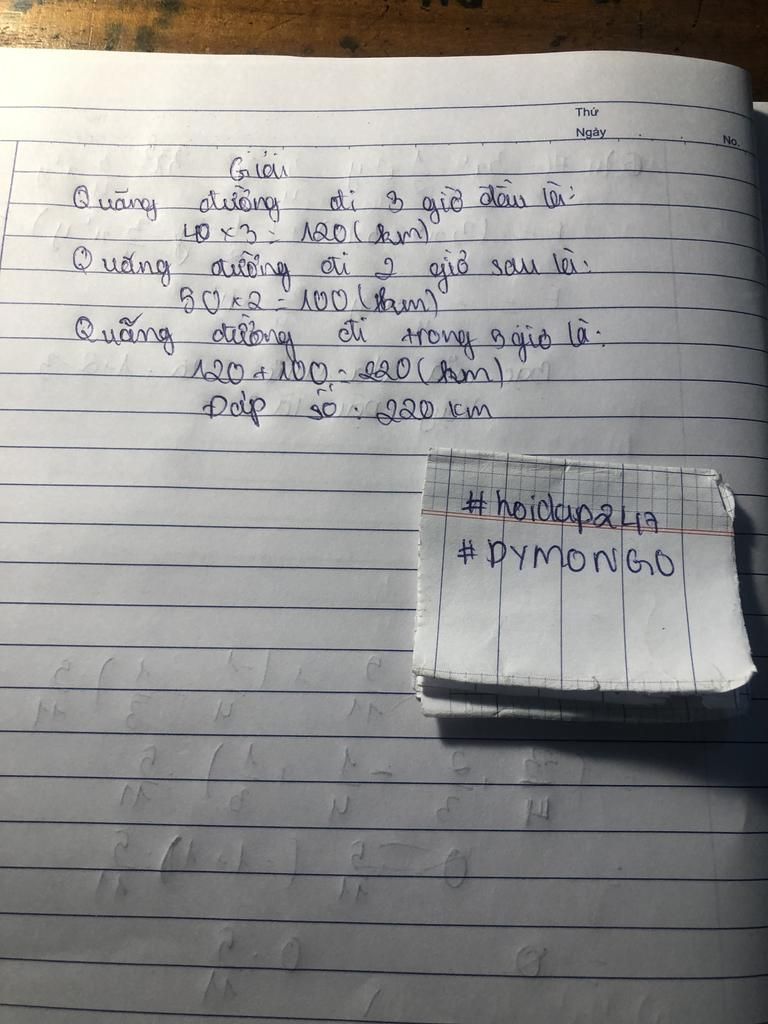 Thứ
Ngày
No.
Giải
Quãng đường đi 3 giờ đầu là:
40 x 3 = 120 (km)
Quãng đường đi 2 giờ sau là:
50 x 2 = 100 (km)
Quãng đường đi trong 3 giờ là:
120 + 100 = 220 (km)
Đáp số : 220 km
#hoidap247
#DYMONGO